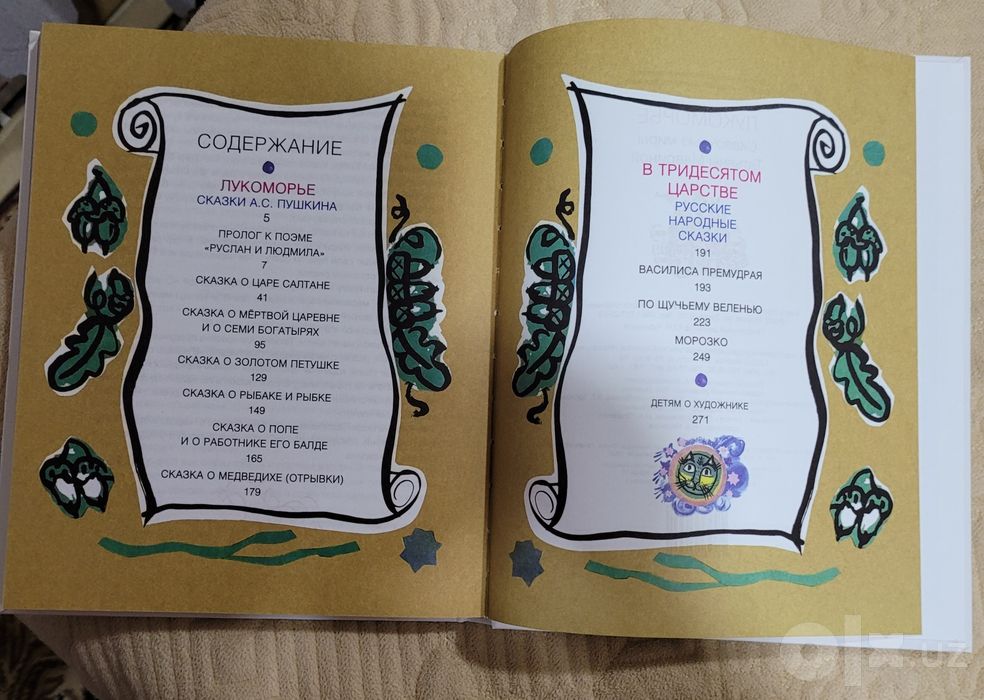 СОДЕРЖАНИЕ
ЛУКОМОРЬЕ
СКАЗКИ А.С. ПУШКИНА
5
ПРОЛОГ К ПОЭМЕ
«РУСЛАН И ЛЮДМИЛА»
7
СКАЗКА О ЦАРЕ САЛТАНЕ
41
СКАЗКА О МЁРТВОЙ ЦАРЕВНЕ
И О СЕМИ БОГАТЫРЯХ
95
СКАЗКА О ЗОЛОТОМ ПЕТУШКЕ
129
СКАЗКА О РЫБАКЕ И РЫБКЕ
149
СКАЗКА О ПОПЕ
И О РАБОТНИКЕ ЕГО БАЛДЕ
165
СКАЗКА О МЕДВЕДИХЕ (ОТРЫВКИ)
179
В ТРИДЕСЯТОМ
ЦАРСТВЕ
РУССКИЕ
НАРОДНЫЕ
СКАЗКИ
191
ВАСИЛИСА ПРЕМУДРАЯ
193
ПО ЩУЧЬЕМУ ВЕЛЕНЬЮ
223
МОРОЗКО
249
ДЕТЯМ О ХУДОЖНИКЕ
271
olx.uz